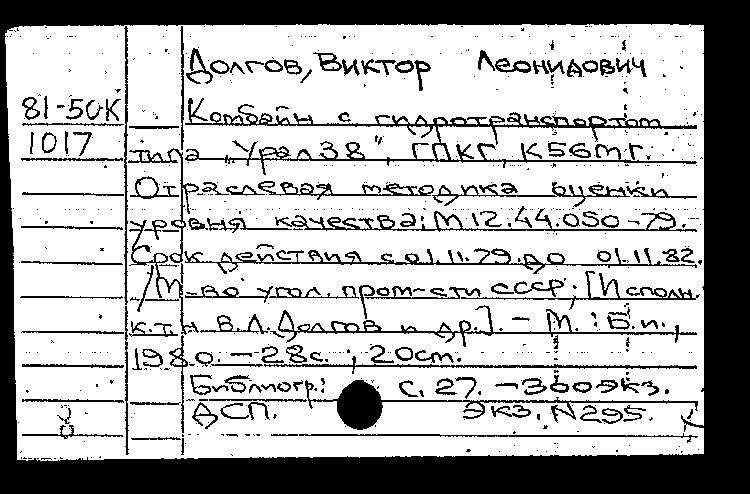 Долгов, Виктор Леонидович
81-50К Комбайн с гидротранспортом
1017 типа „Урал 38", ГПКГ, К56МГ.
Отраслевая методика оценки
уровня качества; М 12.44.050-79.
Срок действия с 01.11.79. до 01.11.82.
/М-во угол. пром-сти СССР; [Исполн.
к.т.н В.Л. Долгов и др.]. - М. : Б.и.,
1980. - 28с. ; 20см.
Библиогр.: с. 27. - 360экз.
ДСП. Экз. N295.